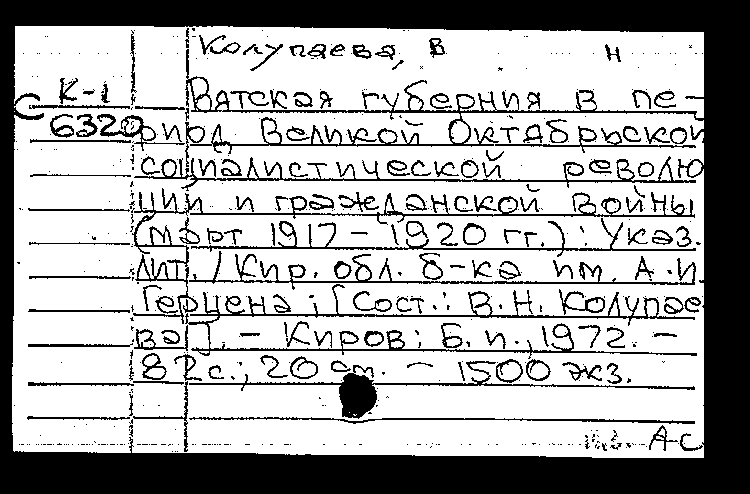 Колупаева, В Н
К-1 Вятская губерния в пе-
С 6320 риод Великой Октябрьской
социалистической револю
ции и гражданской войны
(март 1917 - 1920 гг.) : Указ.
лит. / Кир. обл. б-ка им. А.И.
Герцена ; [Сост.: В.Н. Колупае
ва]. - Киров : Б.и., 1972. -
82 с.; 20 см. - 1500 экз.
А-С